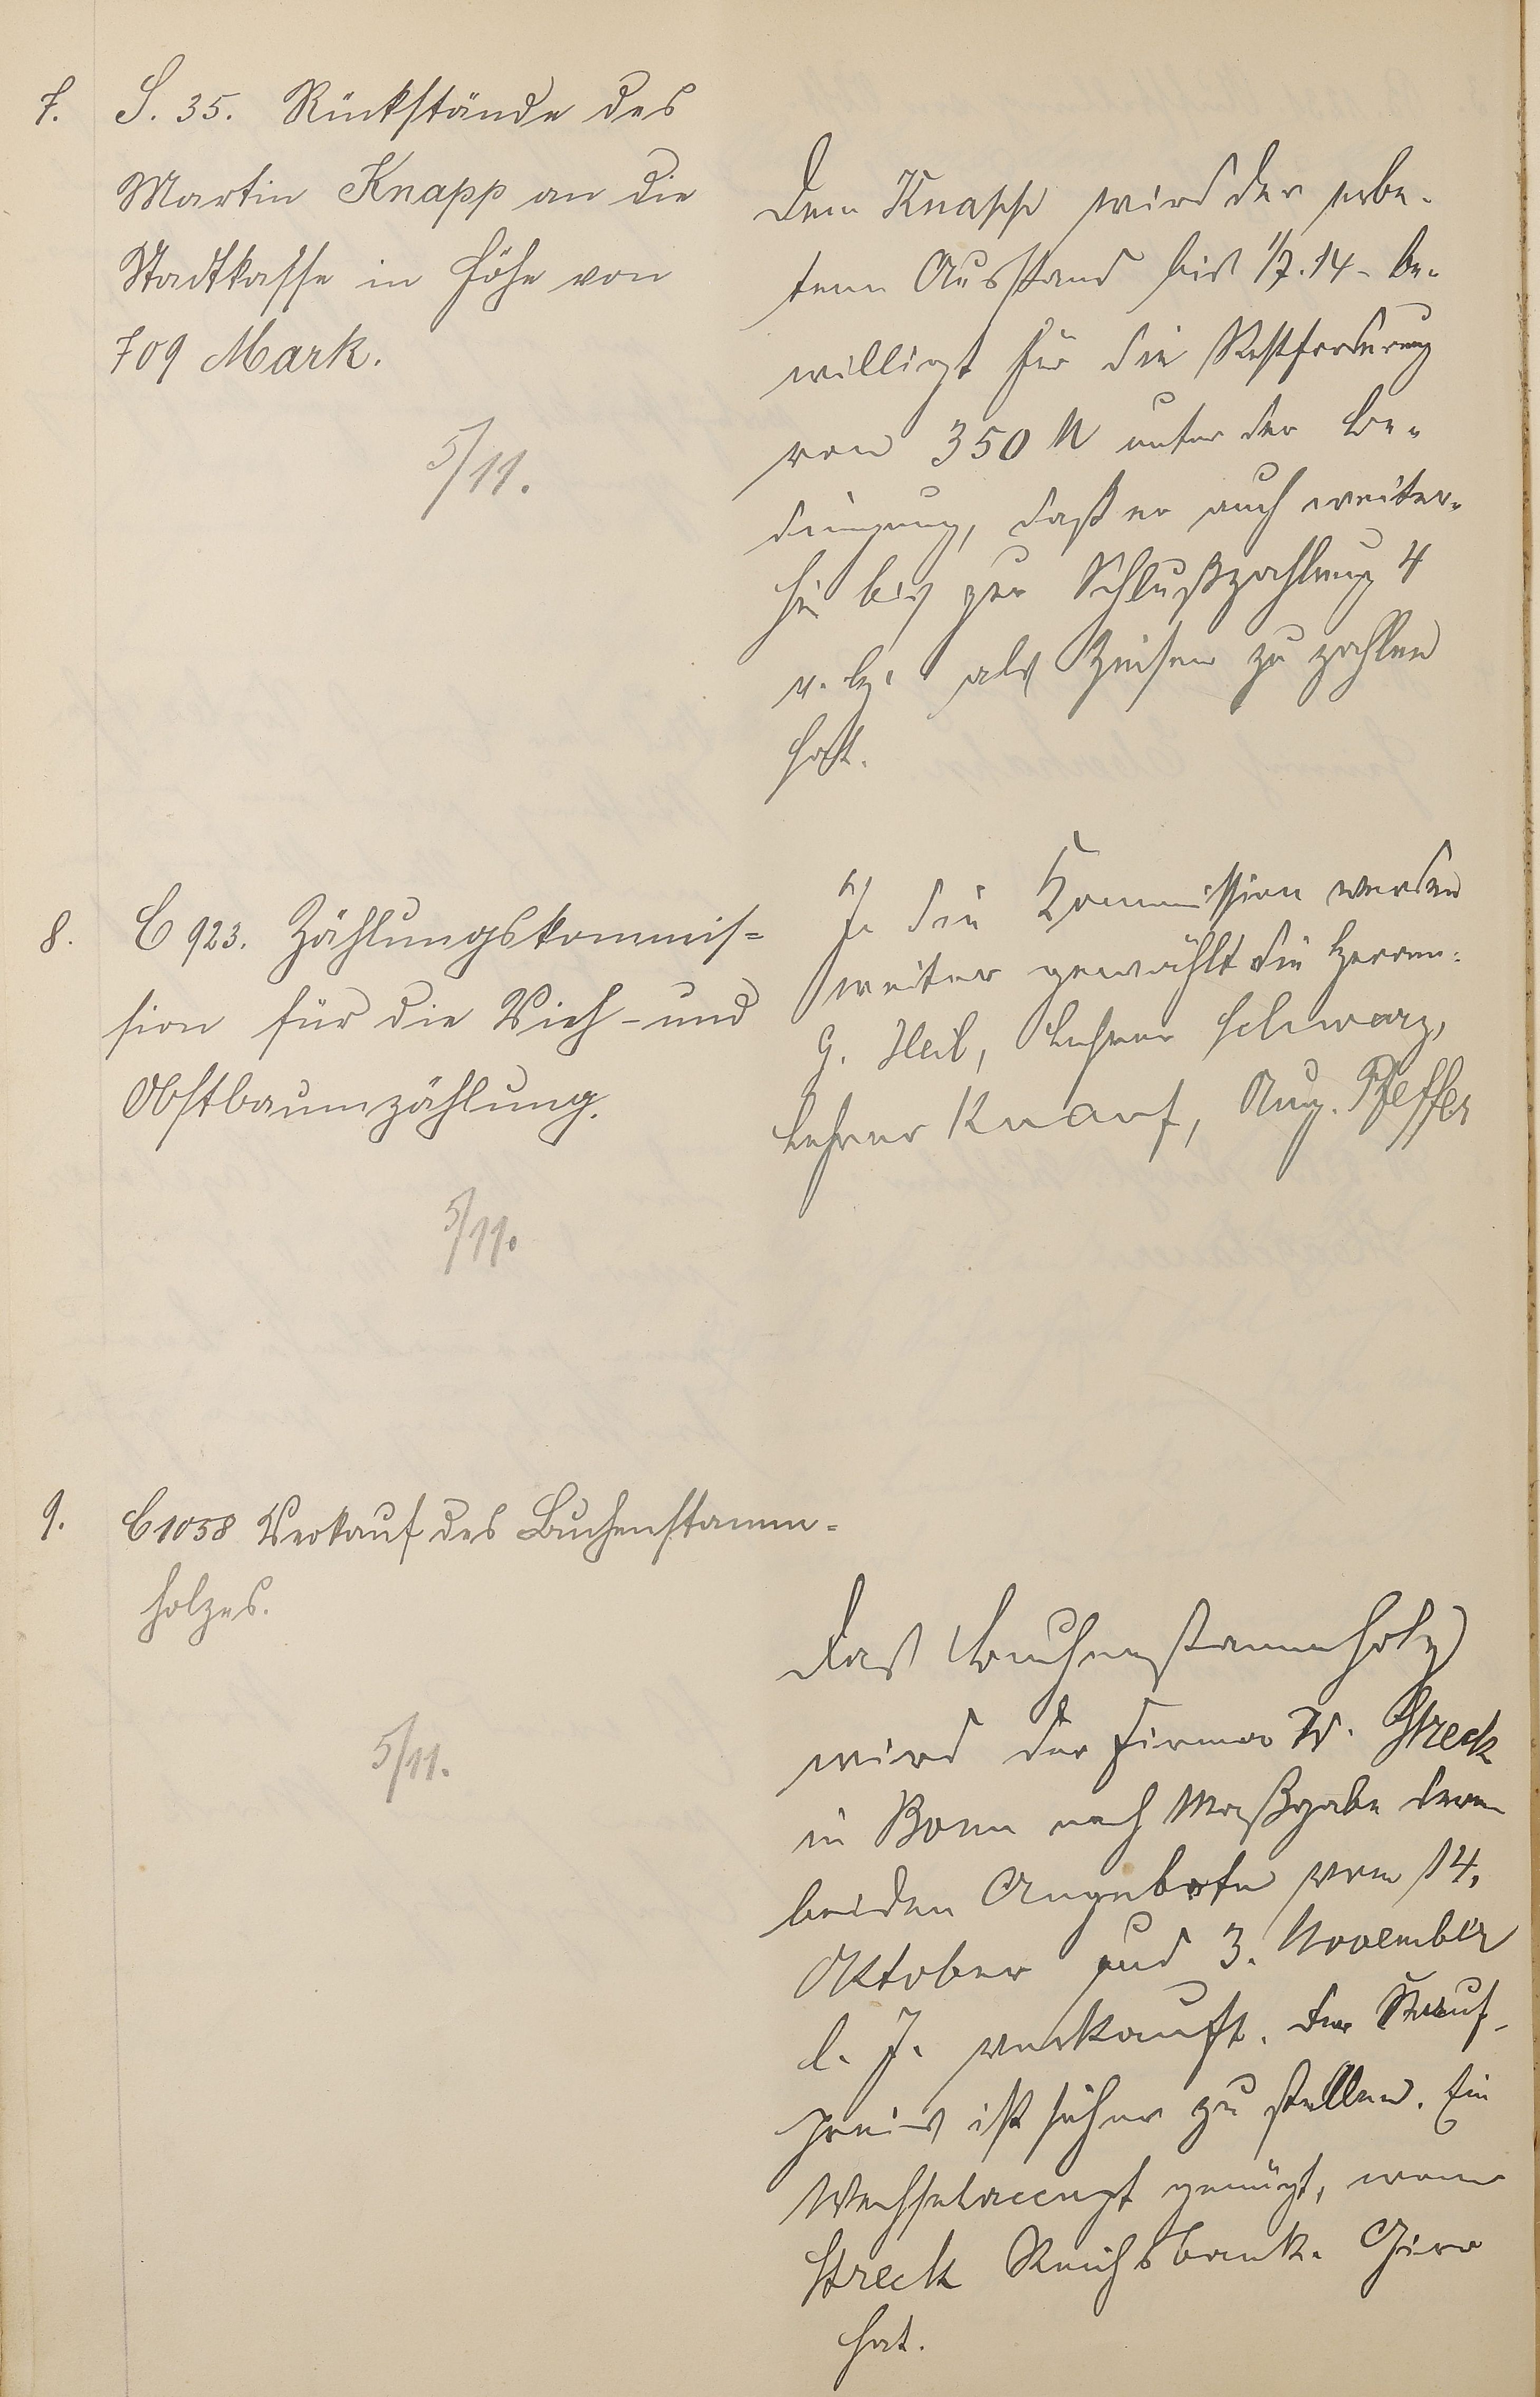 7. S. 35. Rückstände des
Martin Knapp an die
Stadtkasse in Höhe von
709 Mark.
5/11.
Dem Knapp wird der erbe-
tene Ausstand bis 1/7.14 - be-
willigt für die Restforderung
von 350 M unter der Be-
dingung, daß er auch weiter-
hin bis zur Schlußzahlung 4
v. H. als Zinsen zu zahlen
hat.
8. C 923. Zählungskommis-
sion für die Vieh- und
Obstbaumzählung.
5/11.
In die Kommission werden
weiter gewählt die Herren:
G. Heil, Lehrer Schwarz,
Lehrer Knauf, Aug. Pfeffer
9. C 1058 Verkauf des Buchenstamm-
holzes.
5/11.
Das Buchenstammholz
wird der Firma W. Streck
in Bonn nach Maßgabe deren
beiden Angebote vom 14.
Oktober und 3. November
l. J. verkauft. Der Kauf-
preis ist sicher zu stellen. Ein
Wechselaccept genügt, wenn
Streck Reichsbank-Giro
hat.